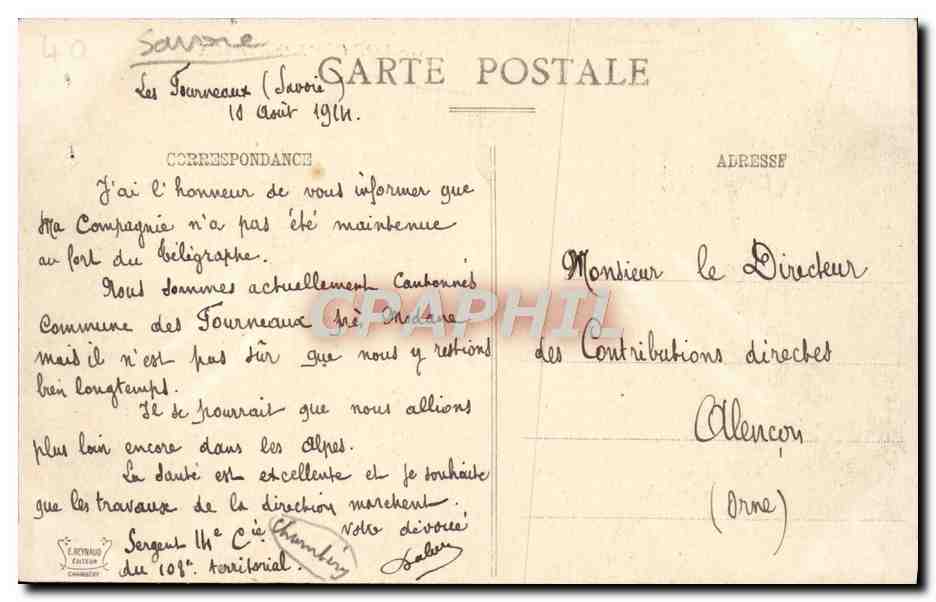 40
Savoie
CARTE POSTALE
Les Fourneaux (Savoie)
10 Août 1914.
CORRESPONDANCE
J'ai l'honneur de vous informer que
Ma Compagnie n'a pas été maintenue
au fort du Télégraphe.
Nous sommes actuellement Cantonnés
Commune des Fourneaux près Modane
mais il n'est pas sûr que nous y restions
bien longtemps.
Il se pourrait que nous allions
plus loin encore dans les Alpes.
La santé est excellente et je souhaite
que les travaux de la direction marchent.
Votre dévoué
Sergent 14e Cie
Chambéry
du 108e territorial.
ADRESSE
Monsieur le Directeur
des Contributions directes
Alençon
(Orne)
CPAPHIL
E. REYNAUD
EDITEUR
CHAMBÉRY